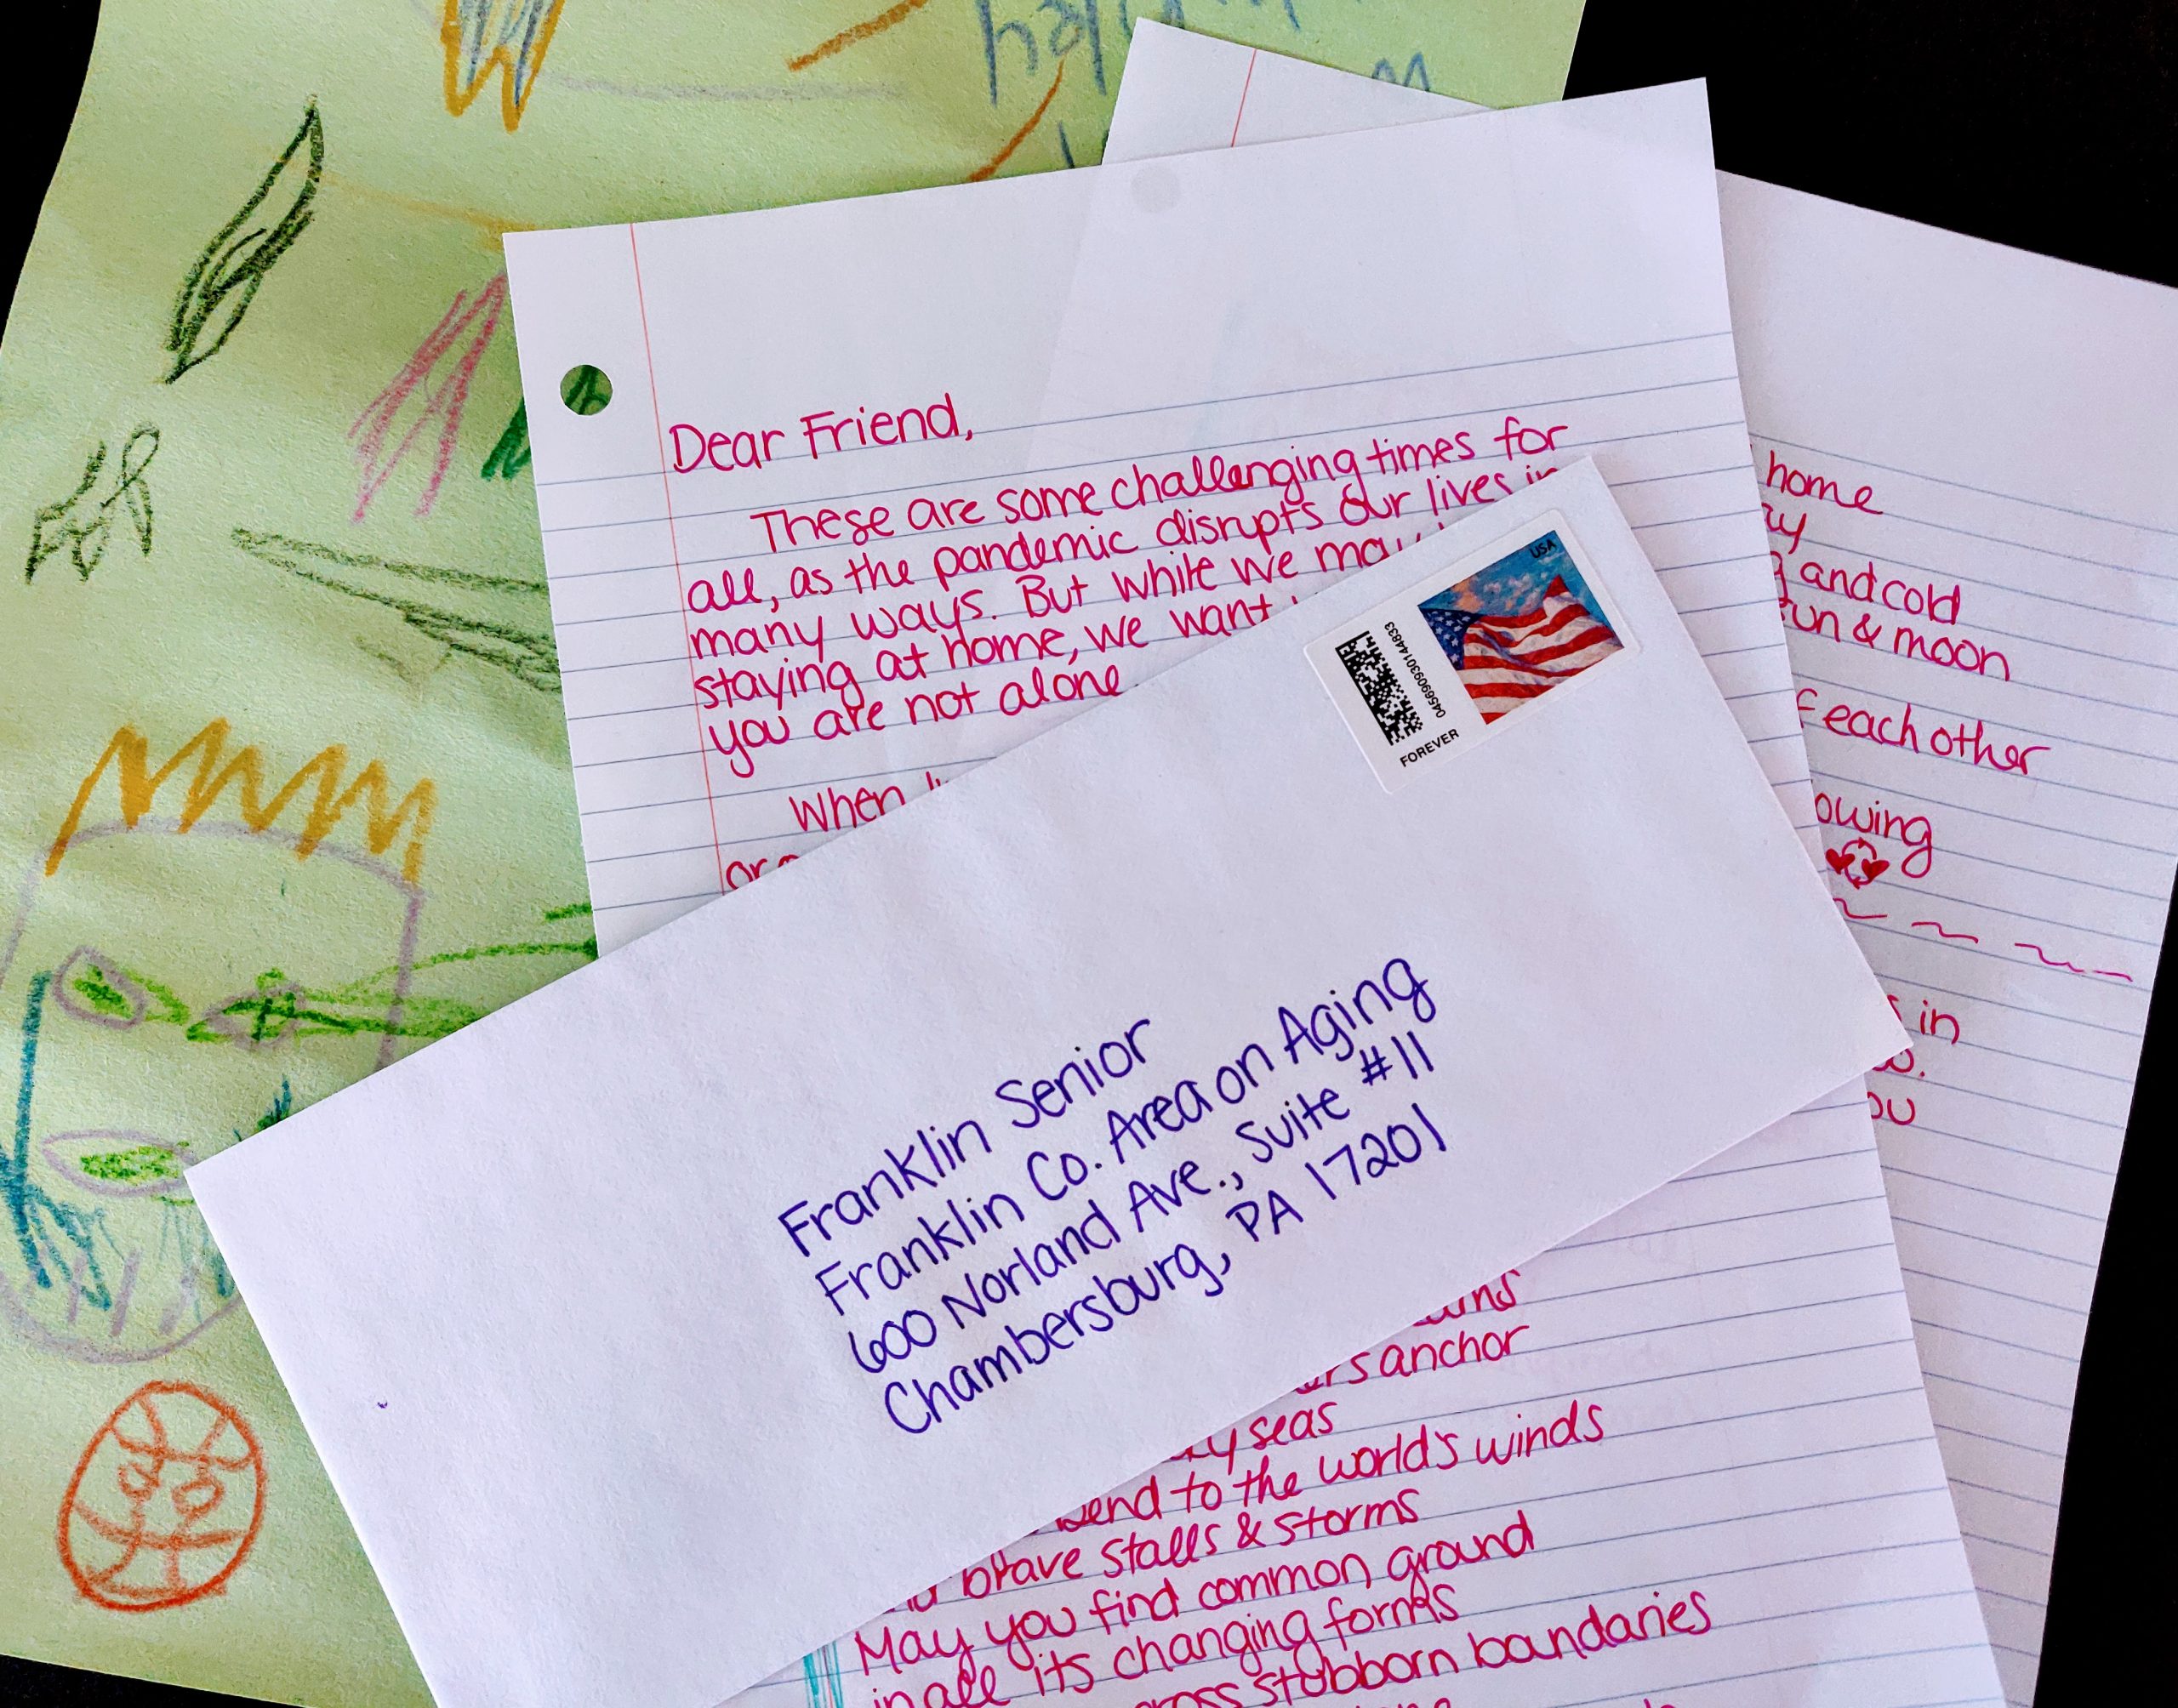 Dear Friend,
These are some challenging times for
all, as the pandemic disrupts our lives in
many ways. But while we may
staying at home, we want
you are not alone
When
home
and cold
sun & moon
each other
in
USA
045690930144633
FOREVER
Franklin Senior
Franklin Co. Area on Aging
600 Norland Ave., Suite #11
Chambersburg, PA 17201
anchor
seas
bend to the world's winds
brave stalls & storms
May you find common ground
in all its changing forms
stubborn boundaries